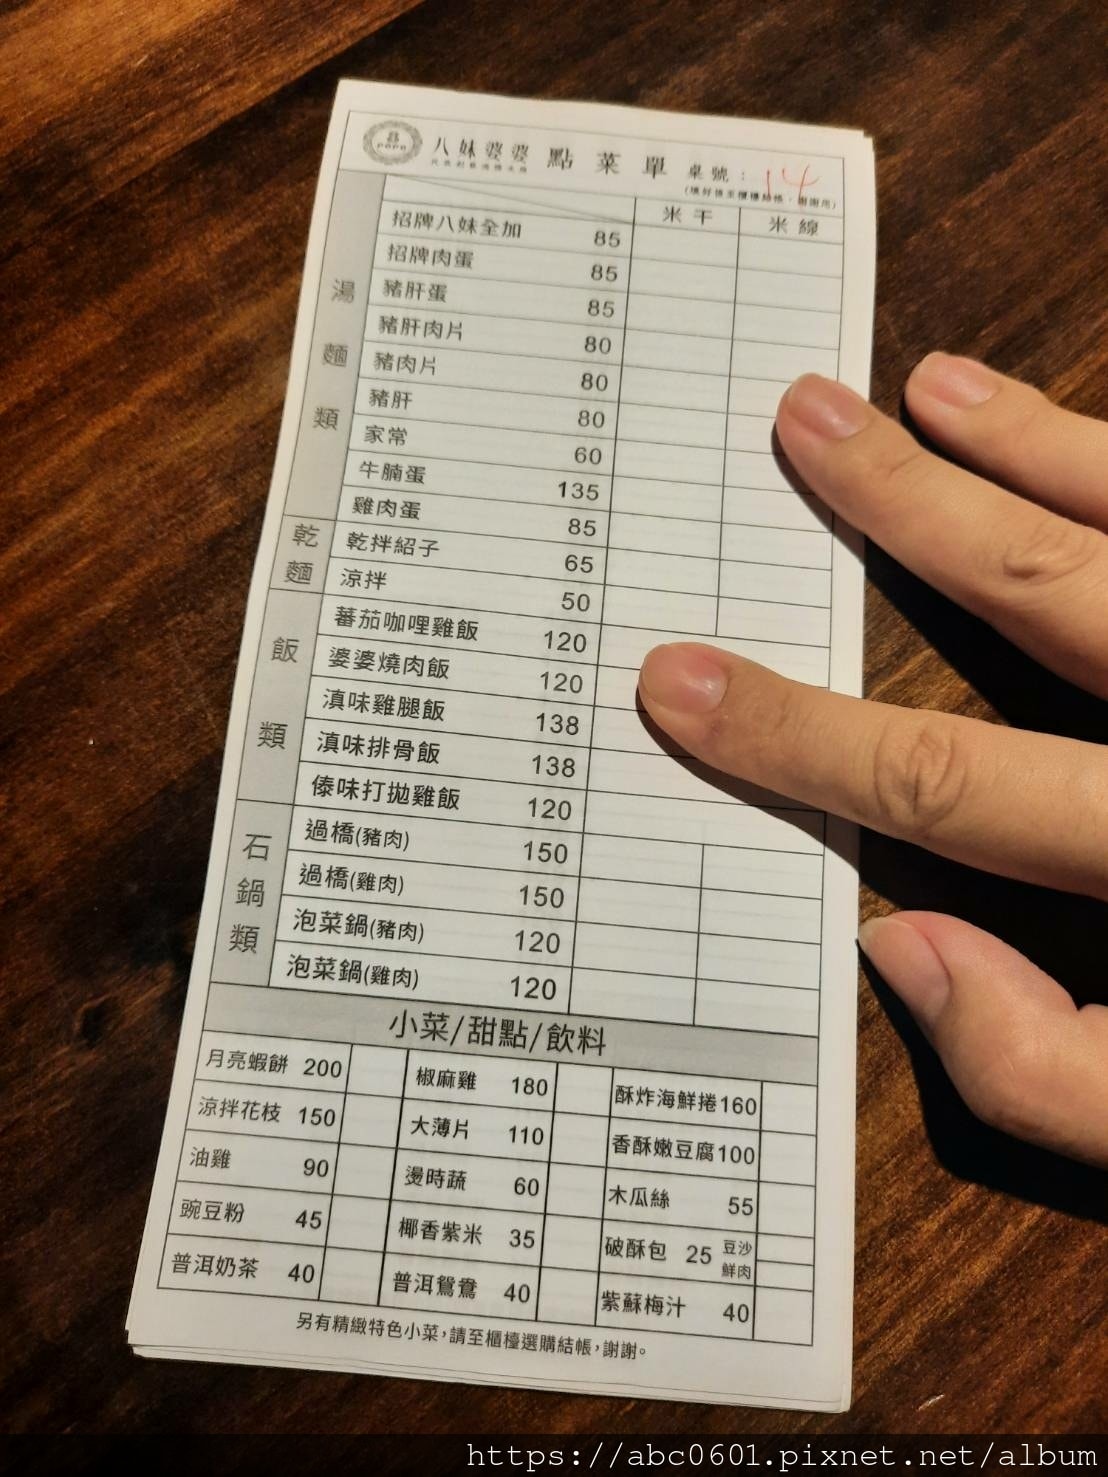 8
POPO
八妹婆婆 點菜單 桌號：14
(填好後至櫃檯結帳，謝謝用)
米干 米線
湯麵類
招牌八妹全加 85
招牌肉蛋 85
豬肝蛋 85
豬肝肉片 80
豬肉片 80
豬肝 80
家常 60
牛腩蛋 135
雞肉蛋 85
乾麵
乾拌紹子 65
涼拌 50
飯類
蕃茄咖哩雞飯 120
婆婆燒肉飯 120
滇味雞腿飯 138
滇味排骨飯 138
傣味打拋雞飯 120
石鍋類
過橋(豬肉) 150
過橋(雞肉) 150
泡菜鍋(豬肉) 120
泡菜鍋(雞肉) 120
小菜/甜點/飲料
月亮蝦餅 200 椒麻雞 180 酥炸海鮮捲160
涼拌花枝 150 大薄片 110 香酥嫩豆腐100
油雞 90 燙時蔬 60 木瓜絲 55
豌豆粉 45 椰香紫米 35 破酥包 25 豆沙 鮮肉
普洱奶茶 40 普洱鴛鴦 40 紫蘇梅汁 40
另有精緻特色小菜，請至櫃檯選購結帳，謝謝。
https://abc0601.pixnet.net/album